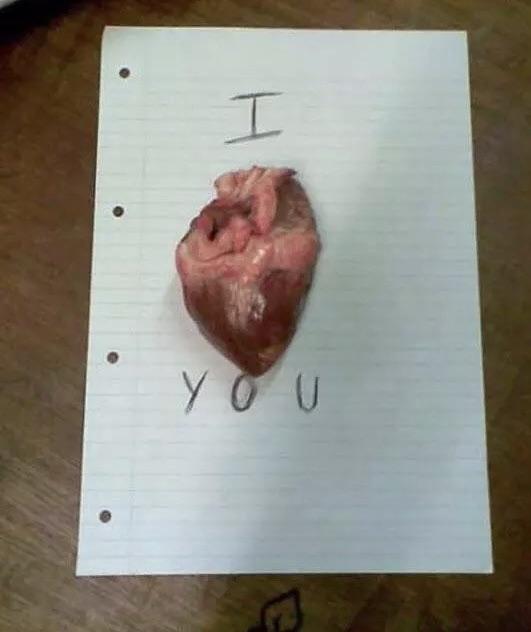 I
YOU